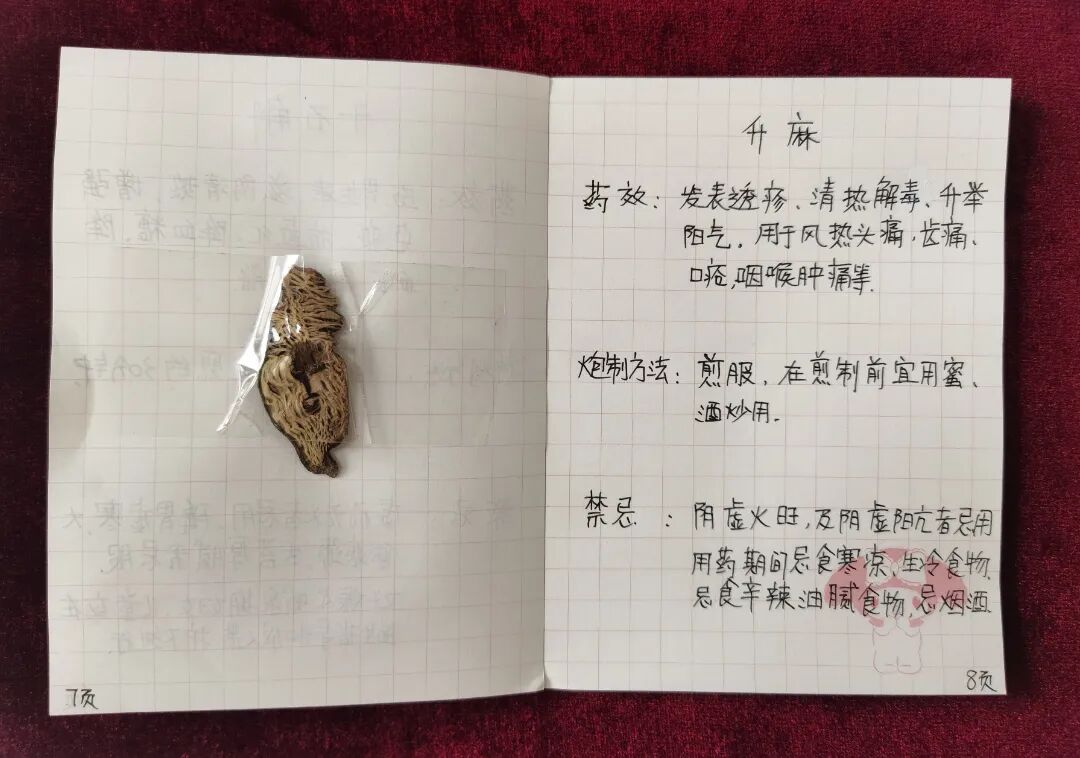 7页
升麻
药效：发表透疹、清热解毒、升举
阳气。用于风热头痛，齿痛、
口疮，咽喉肿痛等.
炮制方法：煎服，在煎制前宜用蜜、
酒炒用.
禁忌：阴虚火旺，及阴虚阳亢者忌用
用药期间忌食寒凉、生冷食物.
忌食辛辣油腻食物，忌烟酒.
8页